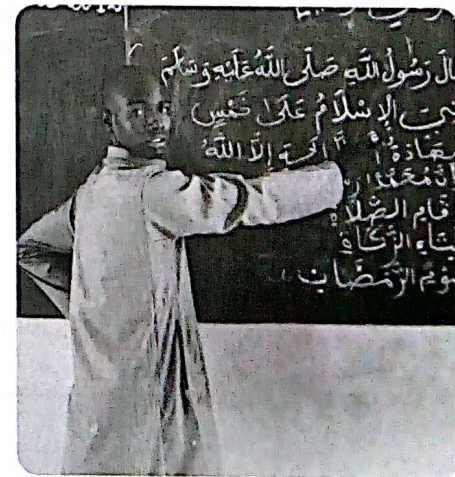 ال رَسُولُ اللَّهِ صَلَّى اللَّهُ عَلَيْهِ وَسَلَّمَ
نِيَ الإِسْلَامُ عَلَى خَمْسٍ
هَادَةُ إِلَّا اللَّهُ
مُحَمَّدًا
قَامِ الصَّلَاةِ
يتَاءِ الزَّكَاةِ
وْمُ الرَّمَضَانِ